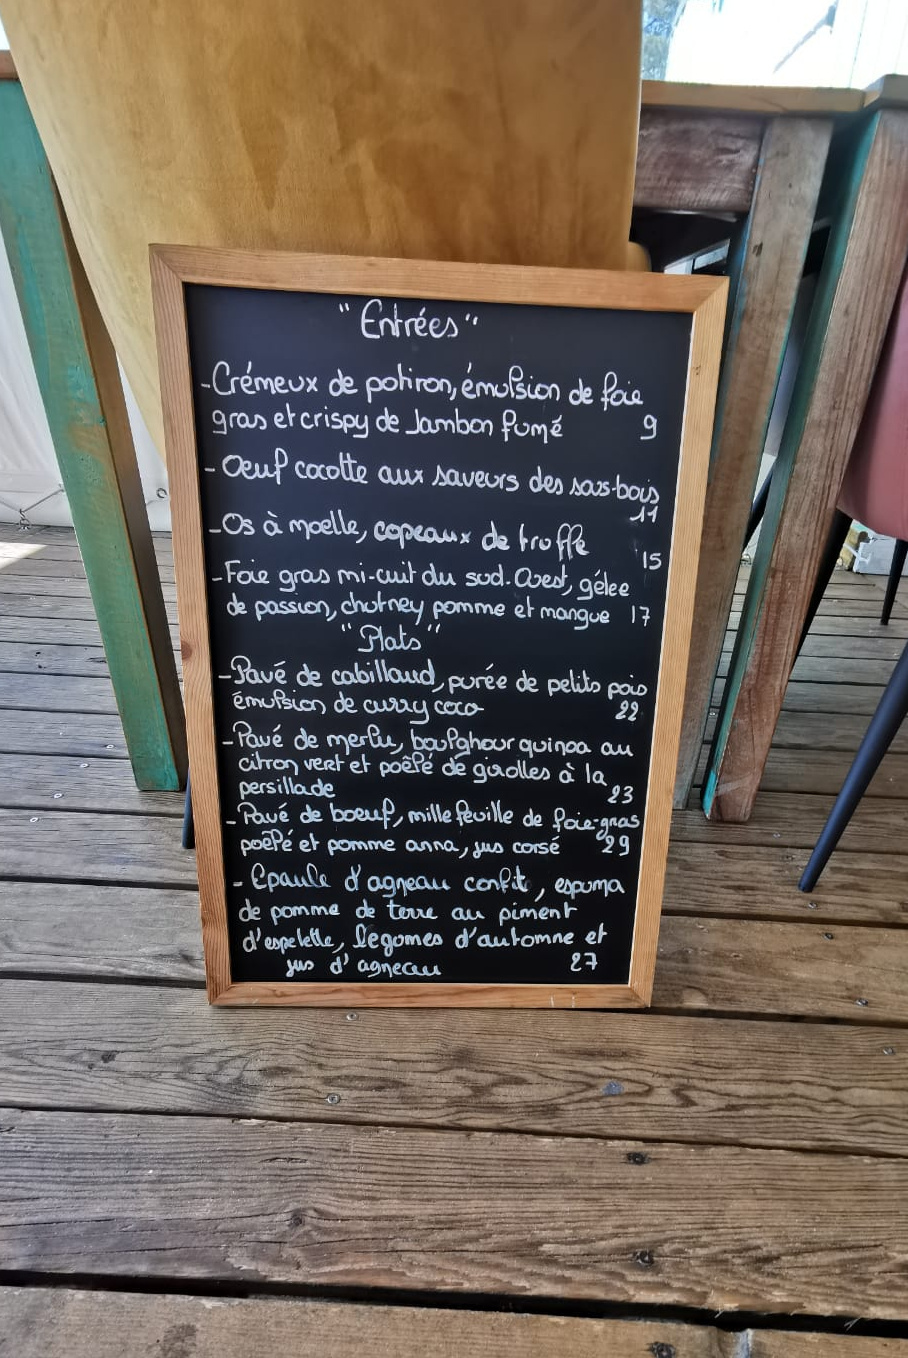 "Entrées"
-Crémeux de potiron, émulsion de foie
gras et crispy de Jambon fumé 9
- Oeuf cocotte aux saveurs des sous-bois
11
-Os à moelle, copeaux de truffe
15
-Foie gras mi-cuit du sud-Ouest, gélee
de passion, chutney pomme et mangue 17
"Plats"
-Pavé de cabillaud, purée de petits pois
émulsion de curry coco 22
-Pavé de merlu, boulghour quinoa au
citron vert et poêlé de girolles à la
persillade 23
-Pavé de boeuf, mille feuille de foie-gras
poêlé et pomme anna, jus corsé 29
- Epaule d'agneau confit, espuma
de pomme de terre au piment
d'espelette, légumes d'automne et
jus d'agneau 27